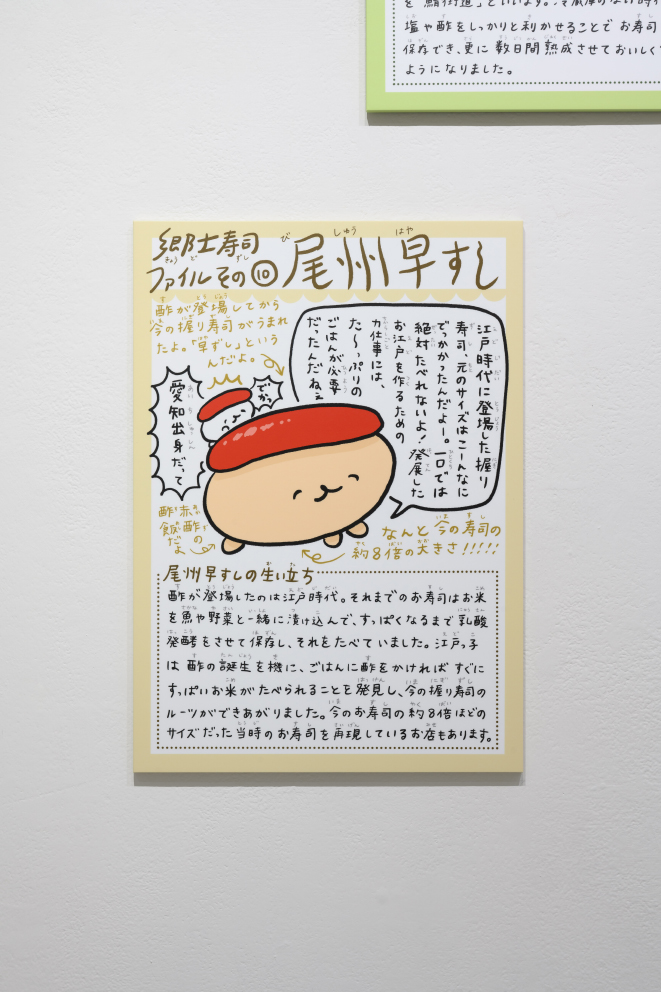 を「鯖街道」といいます。冷蔵庫のない時
塩や酢をしっかりと利かせることでお寿司
保存でき、更に数日間熟成させておいしく
ようになりました。
郷土寿司
きょうどずし
ファイルその⑩
びしゅうはや
尾州早すし
酢が登場してから
今の握り寿司がうまれ
たよ。「早ずし」という
んだよ。
江戸時代に登場した握り
寿司、元のサイズはこーんなに
でっかかったんだよー。一口では
絶対たべれないよ！発展した
お江戸を作るための
力仕事には、
た〜っぷりの
ごはんが必要
だったんだねぇ
でかっ
愛知出身だって
あいちしゅっしん
酢は赤酢
飯酢での
だよ
なんと今の寿司の
約8倍の大きさ!!!!!
尾州早すしの生い立ち
酢が登場したのは江戸時代。それまでのお寿司はお米
を魚や野菜と一緒に漬け込んで、すっぱくなるまで乳酸
発酵をさせて保存し、それをたべていました。江戸っ子
は酢の誕生を機に、ごはんに酢をかければすぐに
すっぱいお米がたべられることを発見し、今の握り寿司の
ルーツができあがりました。今のお寿司の約8倍ほどの
サイズだった当時のお寿司を再現しているお店もあります。